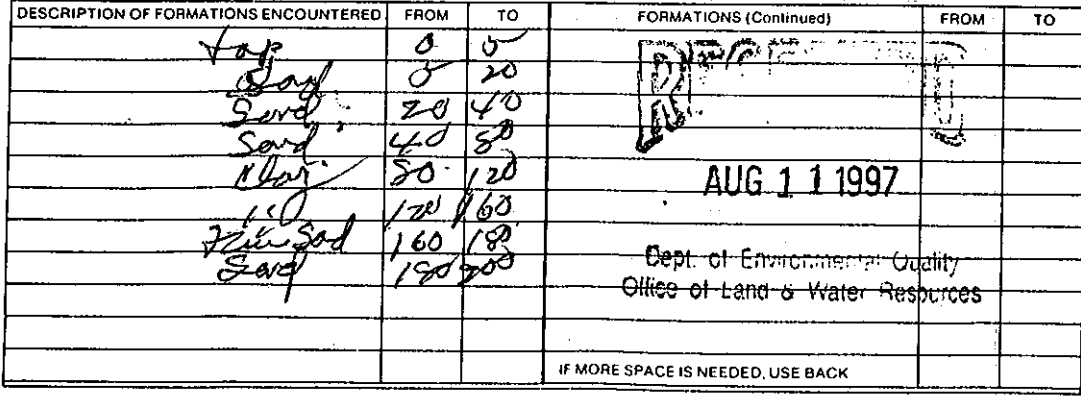 DESCRIPTION OF FORMATIONS ENCOUNTERED FROM TO FORMATIONS (Continued) FROM TO
top 0 5
5 20
Sand 20 40
Sand 40 80
Clay 80 120
120 160
Fine Sad 160 180
Sand 180 200
AUG 11 1997
Dept. of Environmental Quality
Office of Land & Water Resources
IF MORE SPACE IS NEEDED, USE BACK